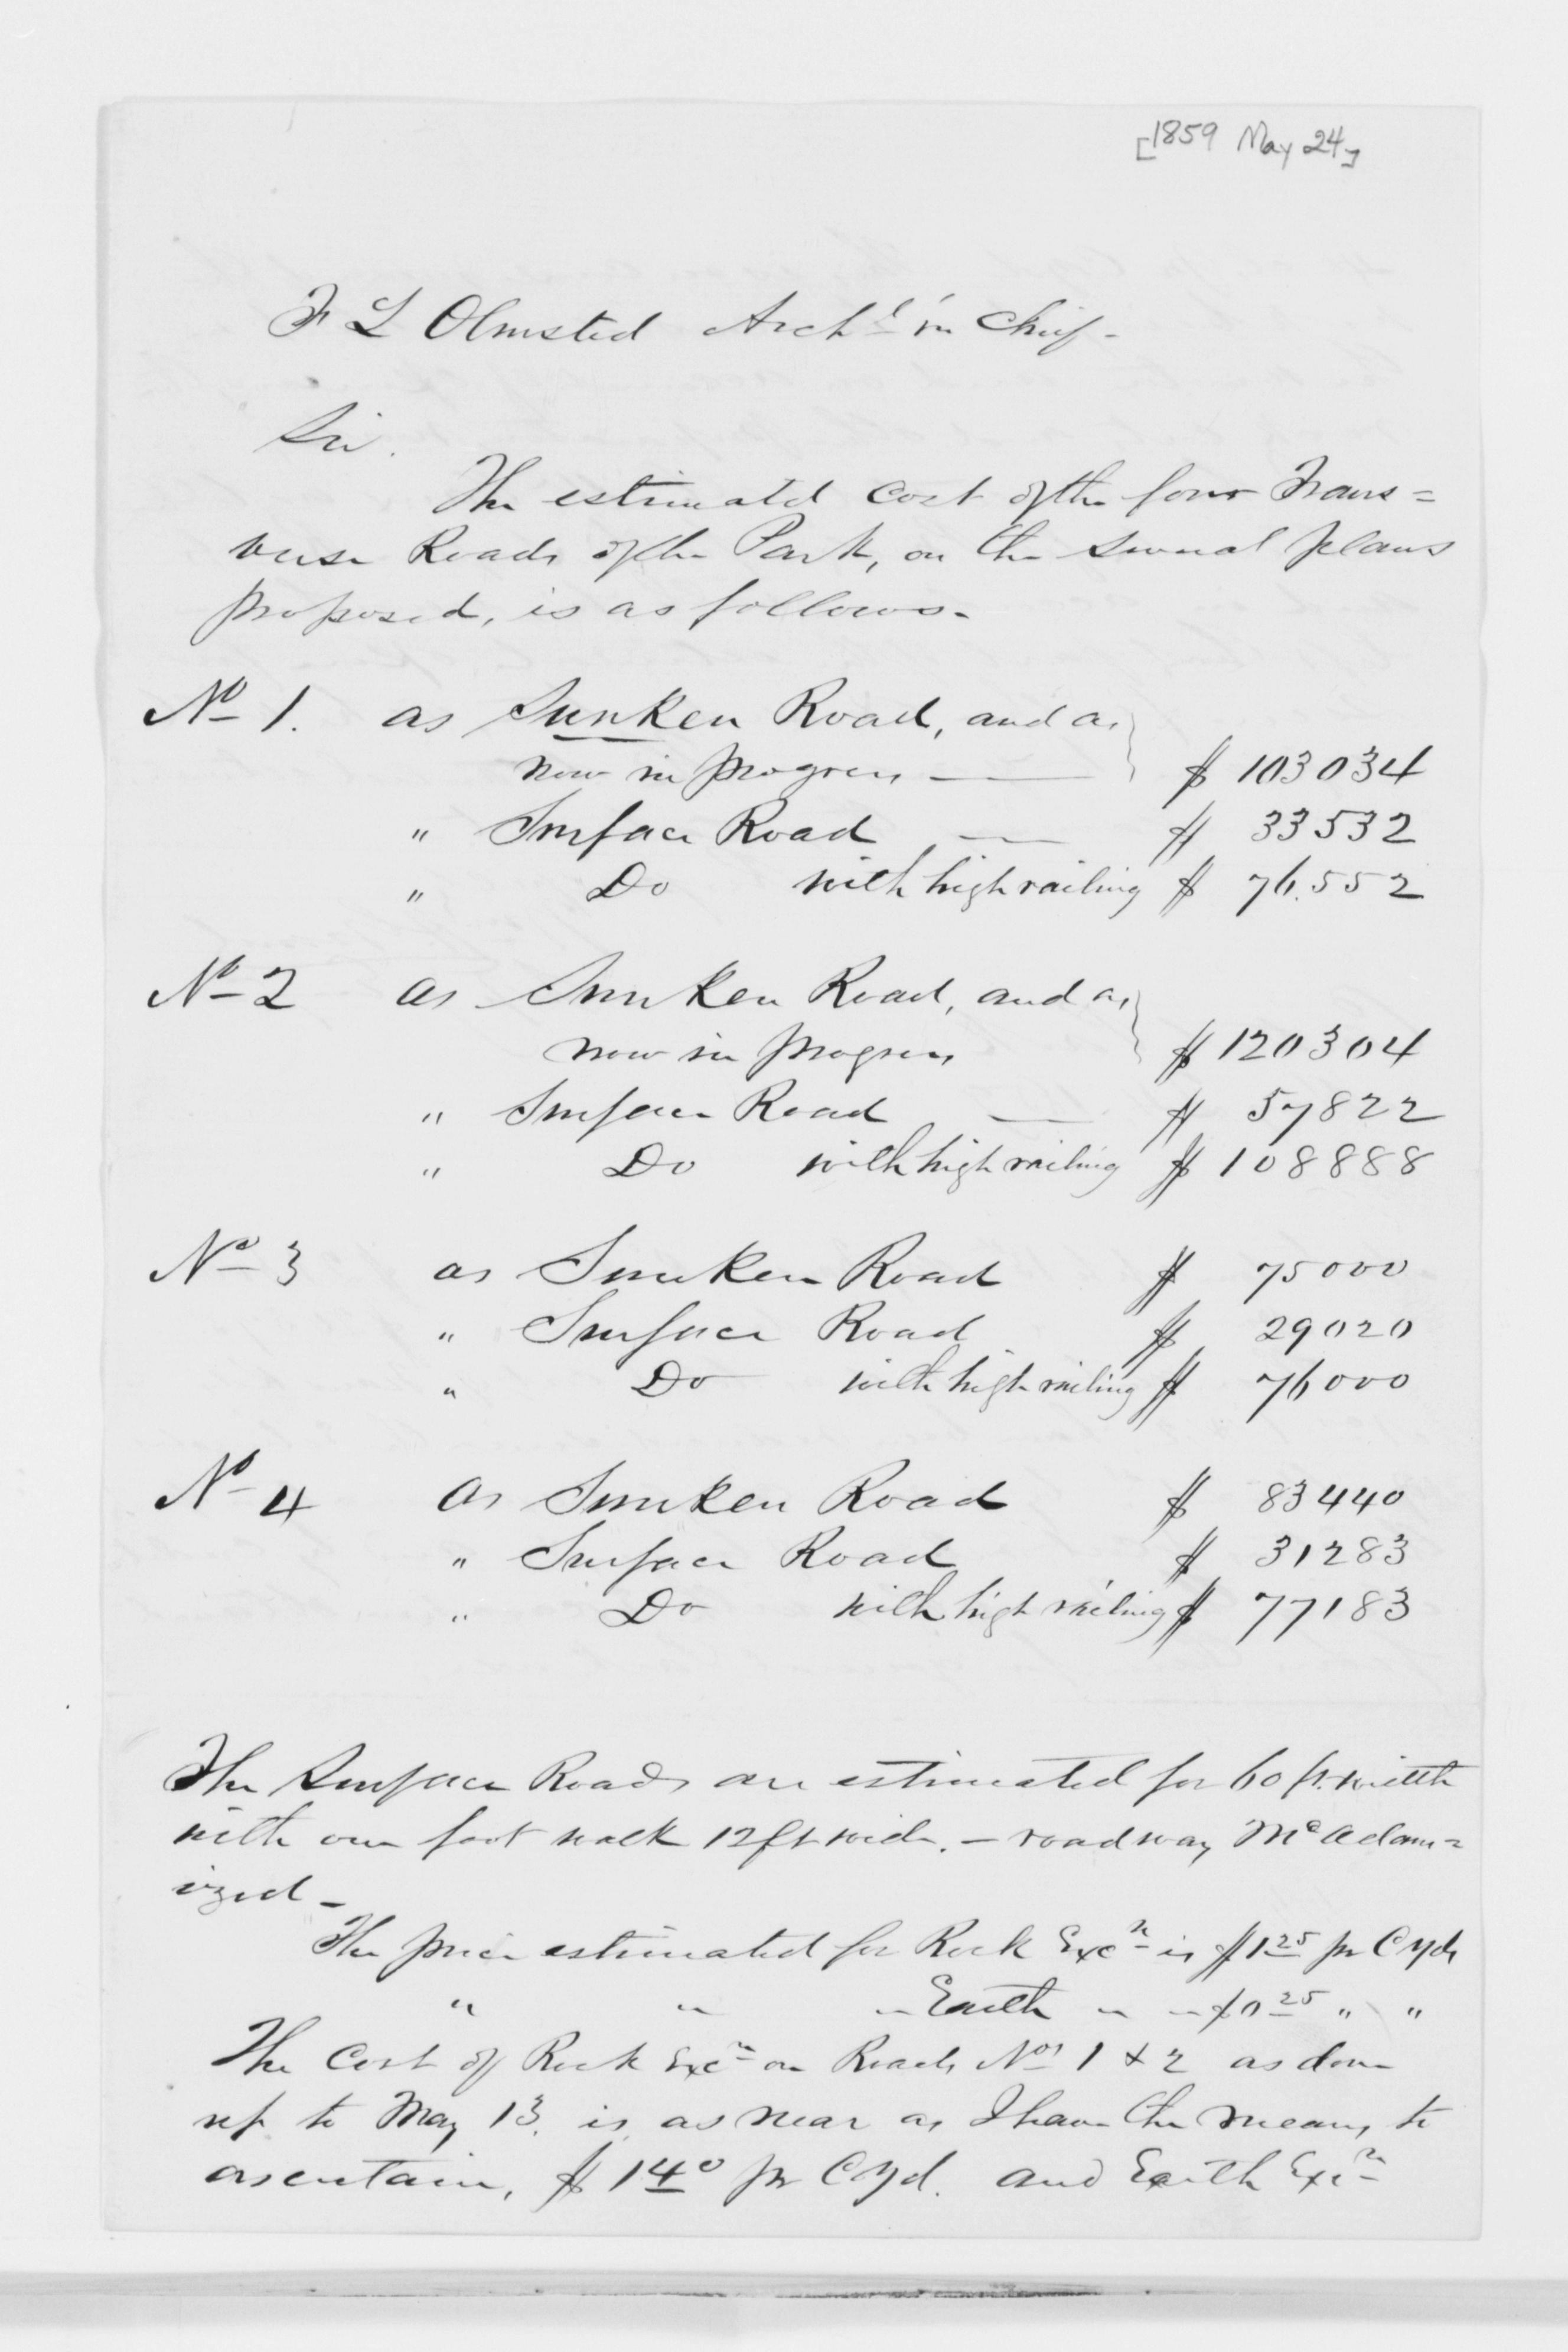 [1859 May 24]
F L Olmsted Archt in Chief -
Sir.
The estimated Cost of the four Trans=
verse Roads of the Park, on the several plans
proposed, is as follows.
No 1. as Sunken Road, and as
now in progress — $ 103034
" Surface Road — $ 33532
" Do with high railing $ 76.552
No 2 as Sunken Road, and as
now in progress $ 120304
" Surface Road — $ 57822
" Do with high railing $ 108888
No 3 as Sunken Road $ 75000
" Surface Road $ 29020
" Do with high railing $ 76000
No 4 as Sunken Road $ 83440
" Surface Road $ 31283
" Do with high railing $ 77183
The Surface Roads are estimated for 60 ft. width
with one foot walk 12 ft wide. — roadway McAdam=
ized —
The price estimated for Rock Excn is $1 25 pr C Yds
" " " Earth " " $0 25 " "
The Cost of Rock Excn on Roads Nos 1 & 2 as done
up to May 13. is, as near as I have the means to
ascertain, $ 1 40 pr C Yd. and Earth Excn